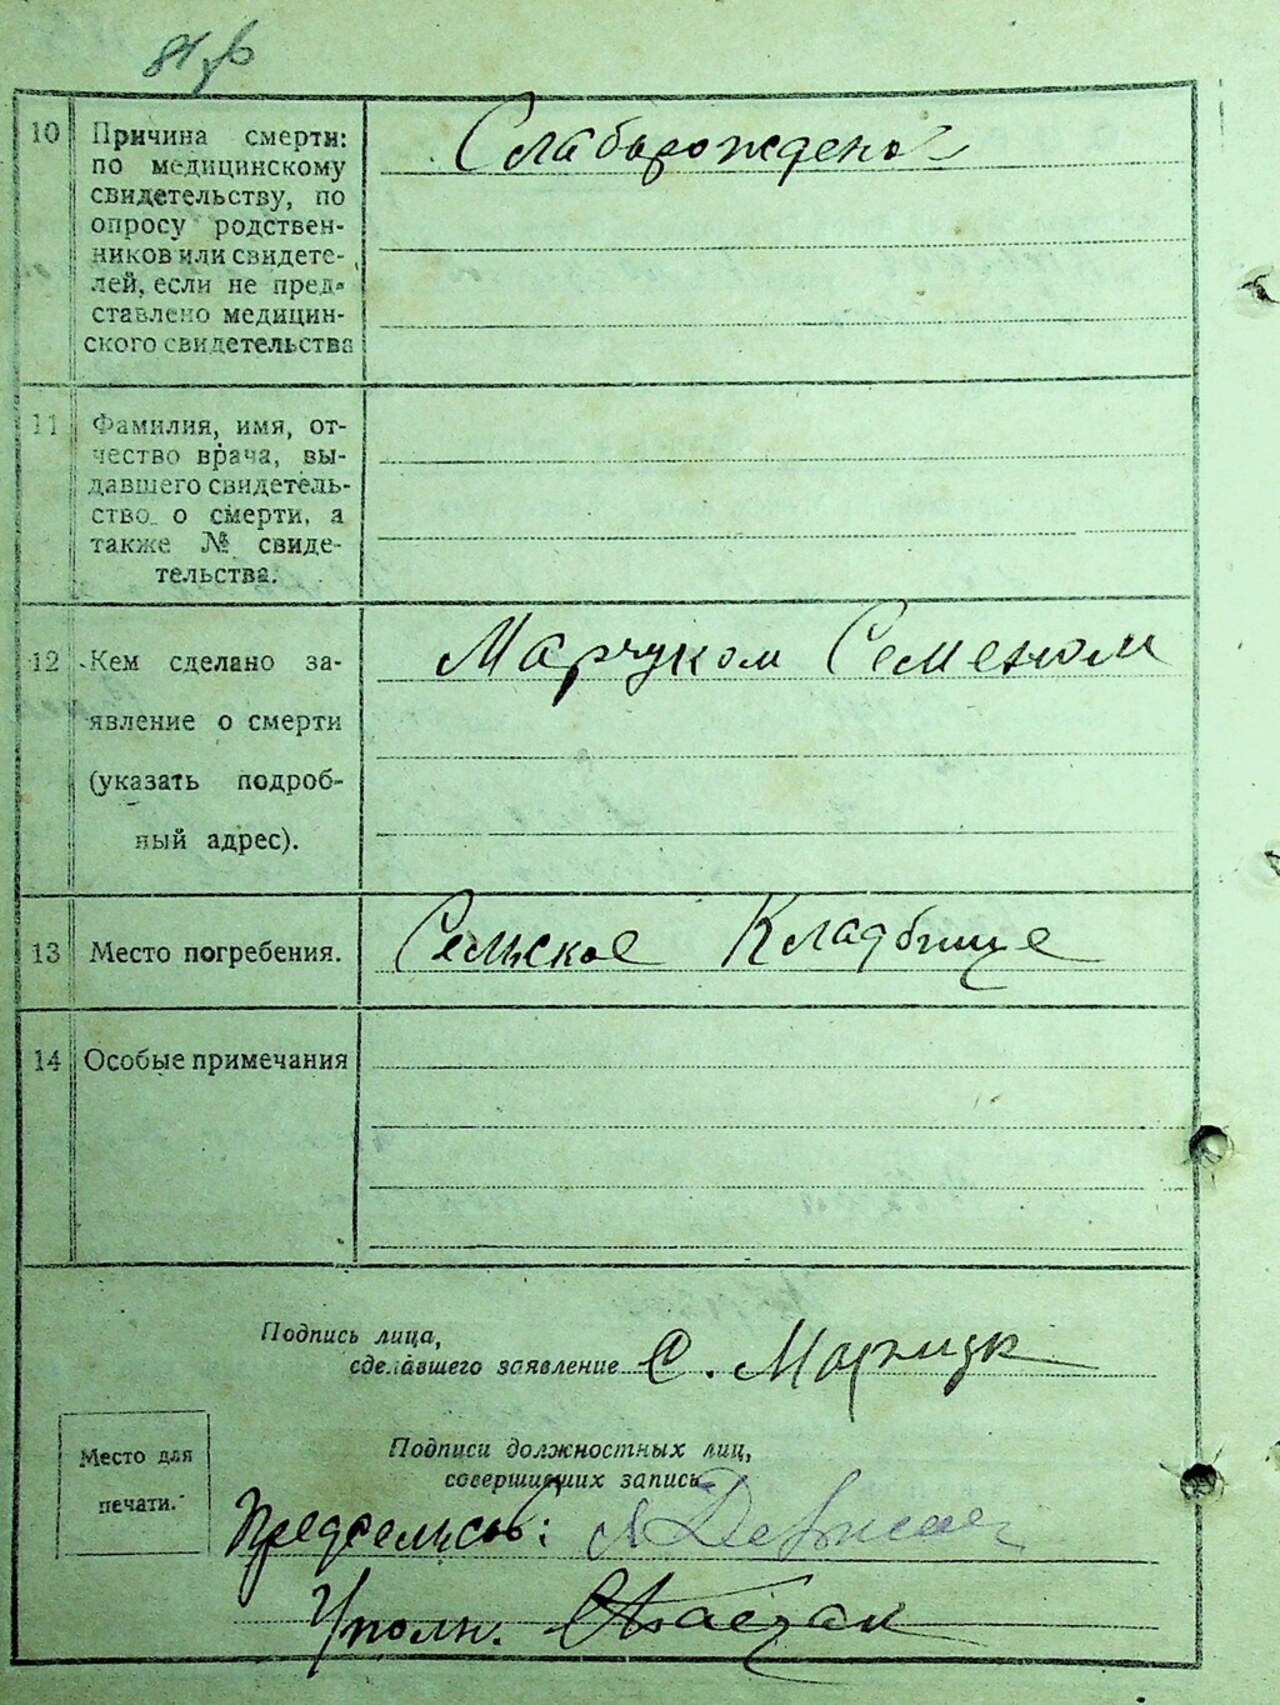 10 Причина смерти: Слаборождено
по медицинскому
свидетельству, по
опросу родствен-
ников или свидете-
лей, если не пред-
ставлено медицин-
ского свидетельства
11 Фамилия, имя, от-
чество врача, вы-
давшего свидетель-
ство о смерти, а
также № свиде-
тельства.
12 Кем сделано за- Марчуком Семеном
явление о смерти
(указать подроб-
ный адрес).
13 Место погребения. Сельское Кладбище
14 Особые примечания
Подпись лица,
сделавшего заявление С. Марчук
Место для
печати.
Подписи должностных лиц,
совершивших запись
Предсельсов:
Уполн.